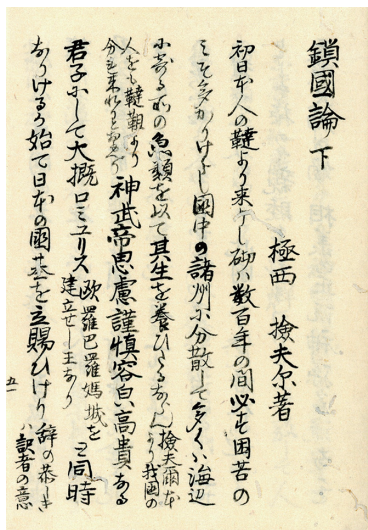 鎖國論 下
極西 撿夫尓著
初日本人の韃より来りし砌ハ数百年の間必す困苦の
ミそ多かりけらし國中の諸州に分散して多くハ海辺
に寄る所の魚類を以て其生を養ひたるなん 撿夫爾本より我國の
人をも韃靼より
分れ来れりとおもへり 神武帝思慮謹慎容皃高貴なる
君子にして大概ロミュリス 欧羅巴羅媽城を建立せし王なり と同時
なりけるか始て日本の國基を立賜ひけり 辞の恭しき
ハ訳者の意